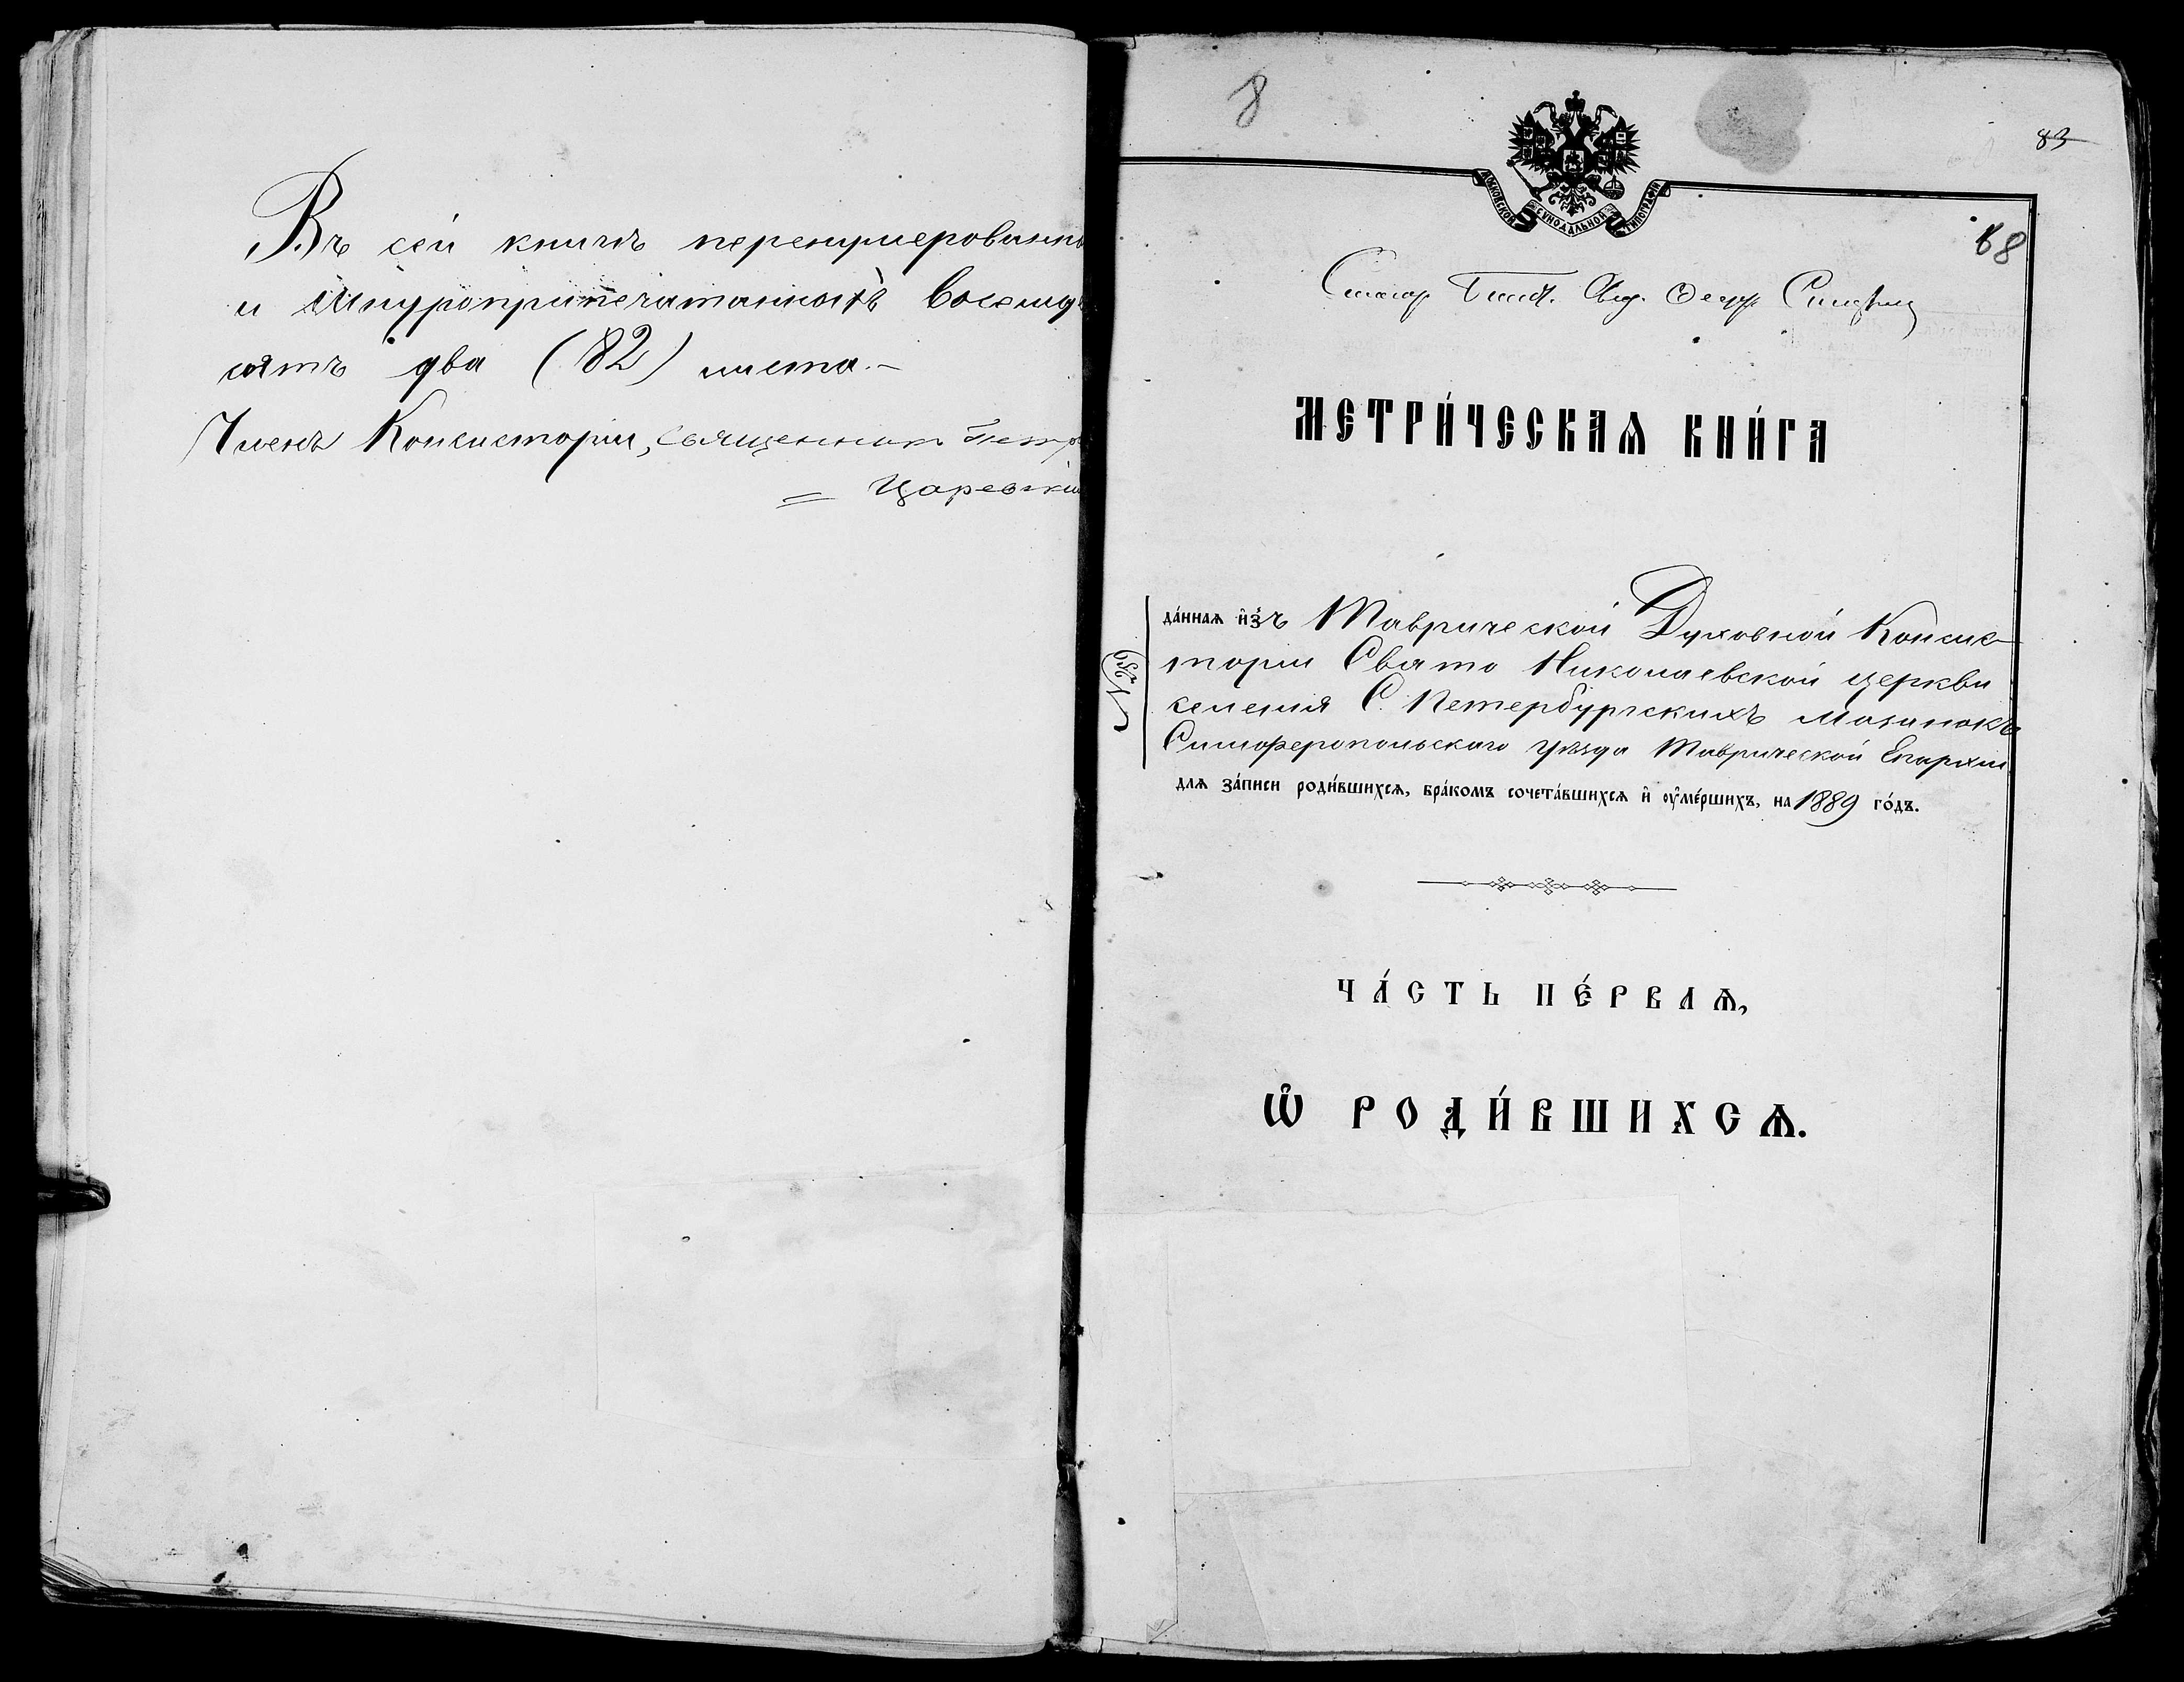 Въ сей книгѣ перенумерованно
и шнуроприпечатанныхъ восемьде
сятъ два (82) листа.—
Членъ Консисторіи, Священникъ Петръ
= Царевскій
8
83
МОСКОВСКОЙ СѴНОДАЛЬНОЙ ТИПОГРАФІИ
68
МЕТРИ́ЧЕСКАѦ КНИ́ГА
№
да́ннаѧ и҆з̾ъ Таврической Духовной Консис-
торіи Свято Николаевской церкви
селенія С. Петербургскихъ Мазанокъ
Симферопольскаго уѣзда Таврической Епархіи
длѧ за́писи роди́вшихсѧ, бра́комъ сочета́вшихсѧ и҆ ᲂу҆ме́ршихъ, на 1889 го́дъ.
ЧА́СТЬ ПЕ́РВАѦ,
Ѽ РОДИ́ВШИХСѦ.